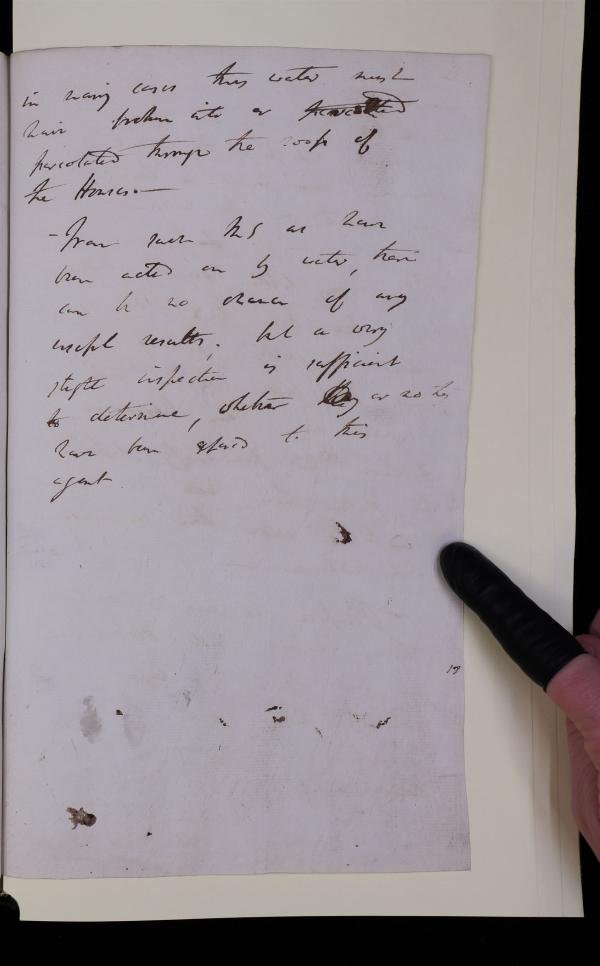 in many cases this water must
have broken into or percolated
percolated through the roofs of
the Houses. —
- From such MS as have
been acted on by water, there
can be no chance of any
useful results, but a very
slight inspection is sufficient
to determine, whether they or no they
have been exposed to this
agent